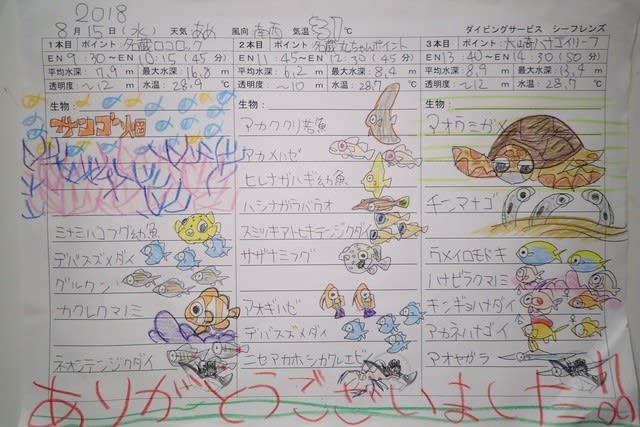 2018
8月15日(水) 天気 あめ 風向 南西 気温 ℃ ダイビングサービス シーフレンズ
1本目 ポイント: 外蔵ロコロック
EN 9:30〜EN 10:15 (45分)
平均水深: 7.9m 最大水深: 16.8m
透明度: 〜12m 水温: 28.9℃
生物:
サンゴ畑
ミナミハコフグ幼魚
デバスズメダイ
グルクン
カクレクマノミ
ネオンテンジクダイ
2本目 ポイント: 外蔵丸ちゃんポイント
EN 11:45〜EN 12:30 (45分)
平均水深: 6.2m 最大水深: 8.4m
透明度: 〜10m 水温: 28.7℃
生物:
アカククリ若魚
アカメハゼ
ヒレナガハギ幼魚
ハシナガウバウオ
スミツキアトヒキテンジクダイ
サザナミフグ
アオギハゼ
デバスズメダイ
ニセアカホシカクレエビ
3本目 ポイント: 大山崎ハナゴイリーフ
EN 13:40〜EN 14:30 (50分)
平均水深: 8.9m 最大水深: 13.4m
透明度: 〜12m 水温: 28.7℃
生物:
アオウミガメ
チンアナゴ
ウメイロモドキ
ハナビラクマノミ
キンギョハナダイ
アカネハナゴイ
アオヤガラ
ありがとうございました!!